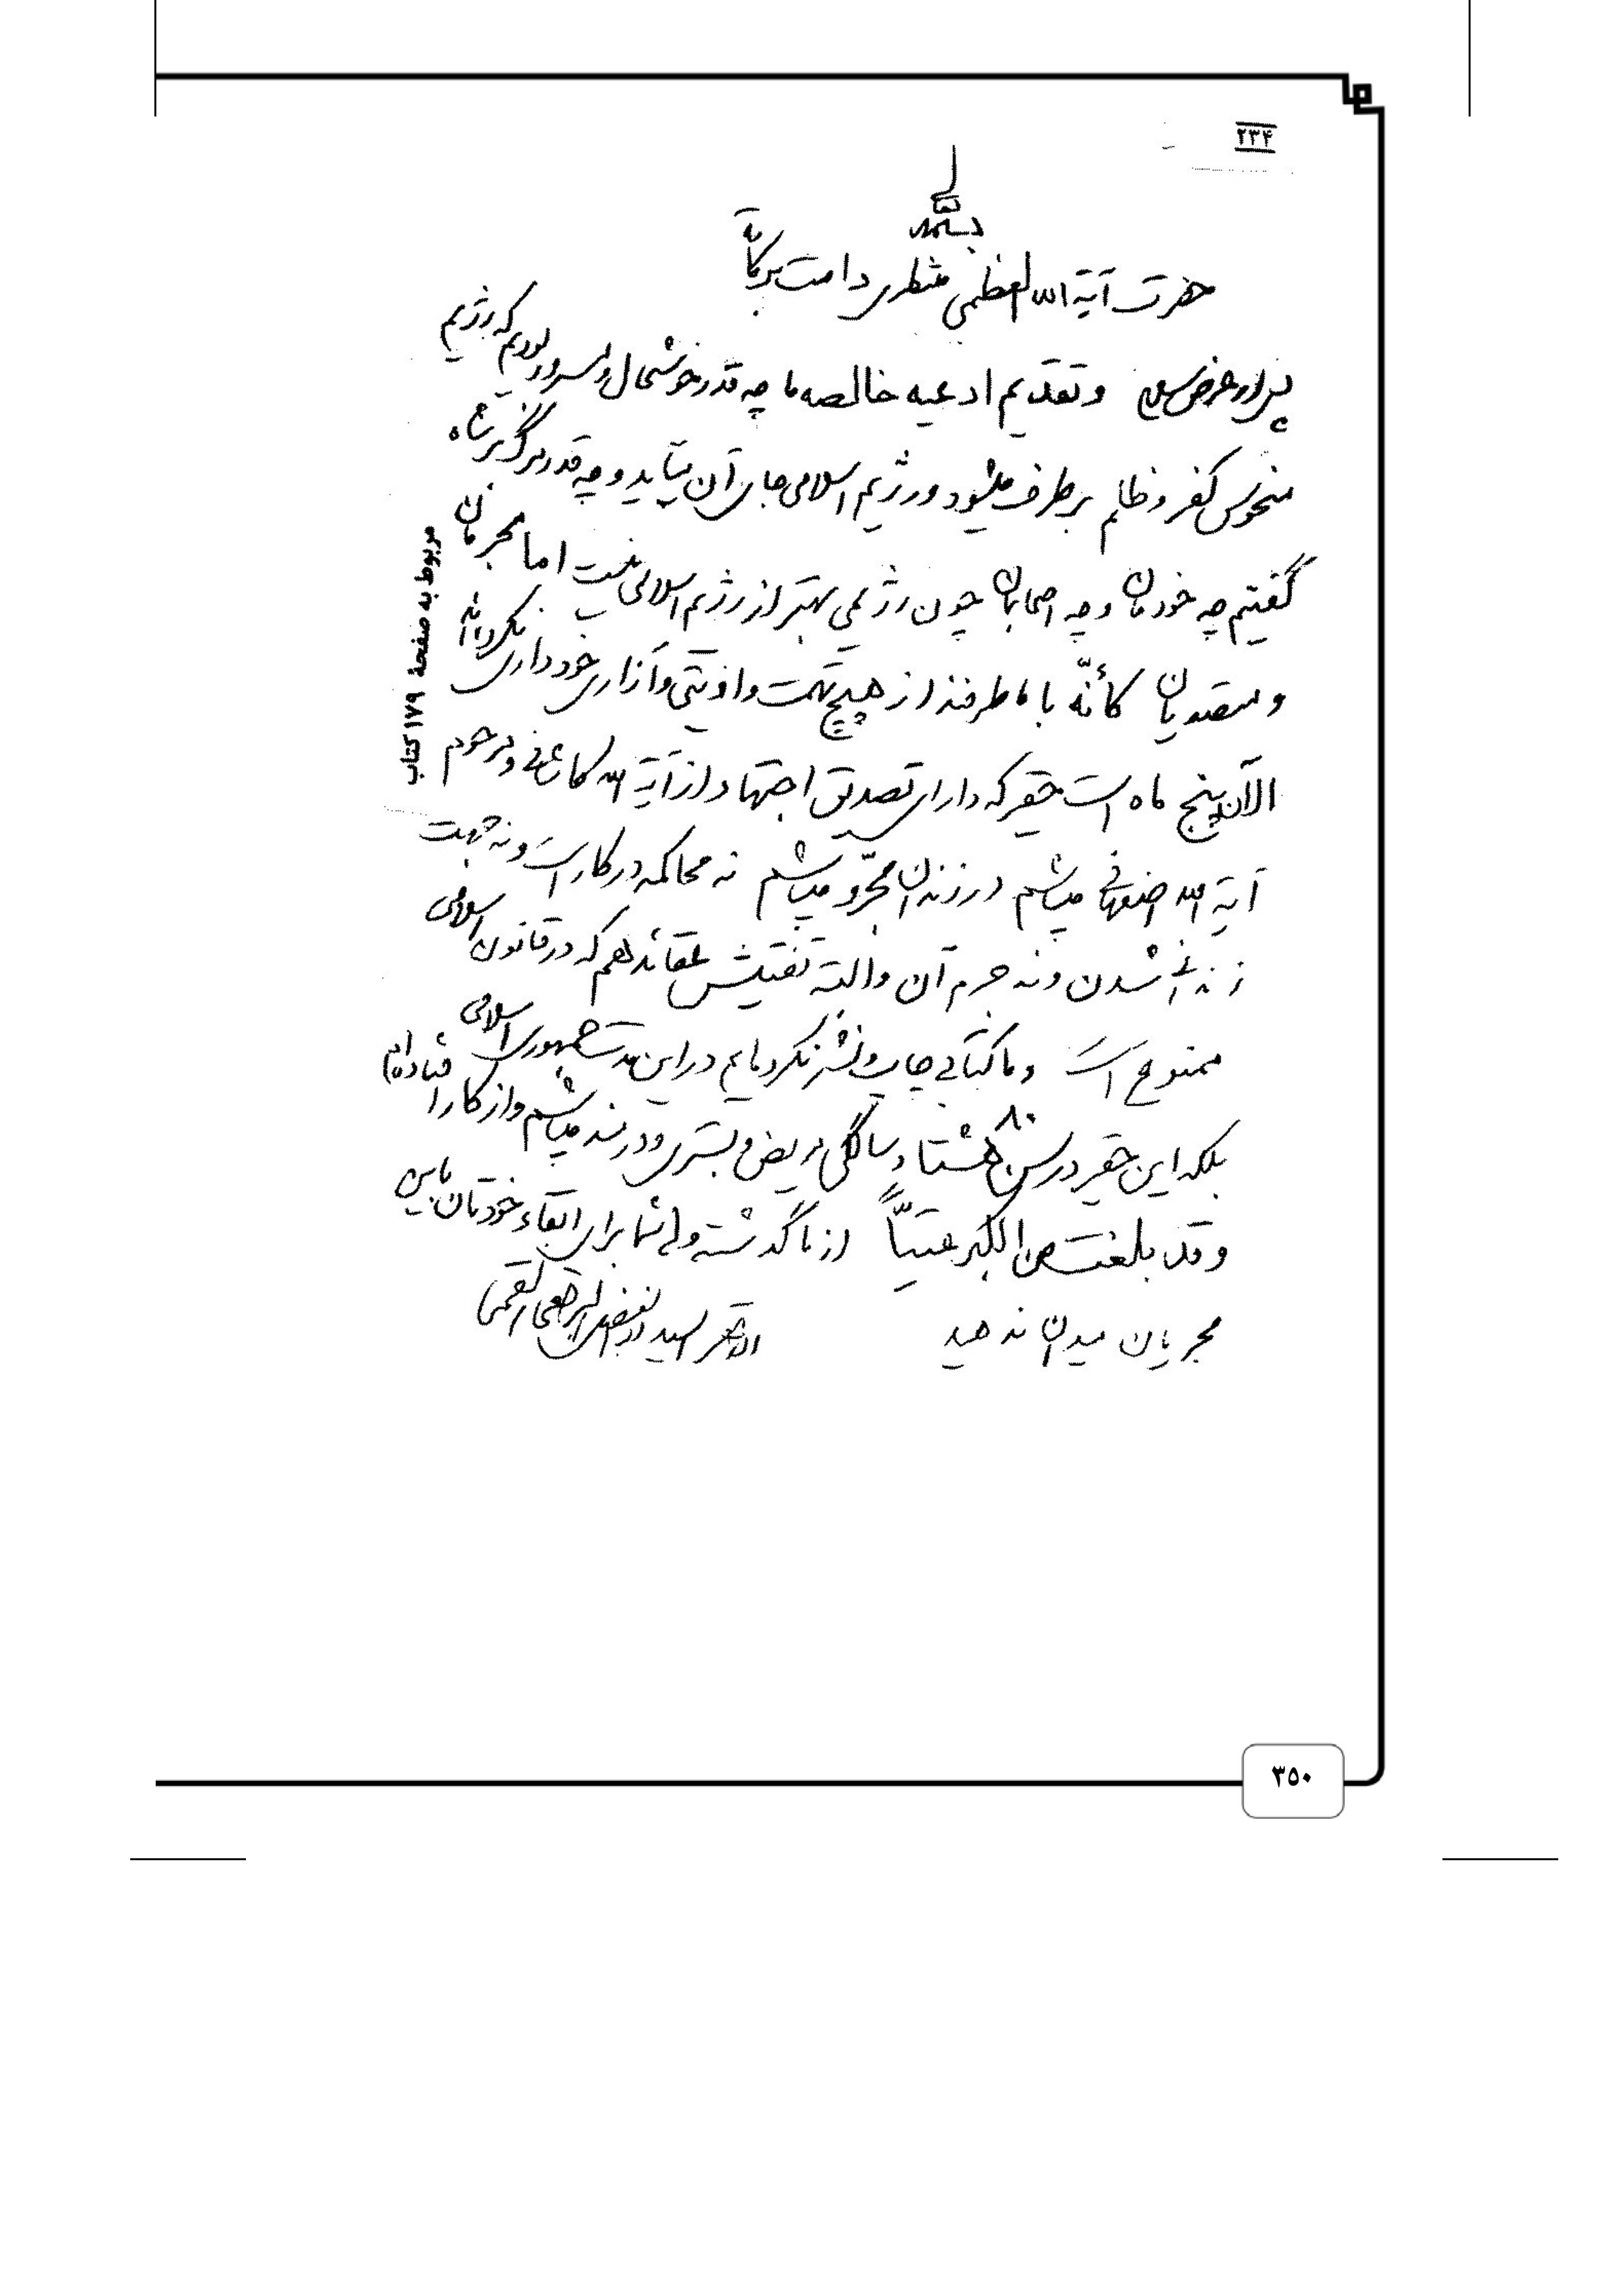 ۲۳۴
حضرت آیة الله العظمی منتظری دامت برکاته
پس از عرض سلام و تقدیم ادعیه خالصه ما چه قدر خوشحال و مسرور بودیم که رژیم
منحوس کفر و ظلم برطرف میشود و رژیم اسلامی جای آن میآید و چه قدر مرگ بر شاه
گفتیم چه خودمان و چه اصحابمان چون رژیمی بهتر از رژیم اسلامی نیست اما مجریان
و متصدیان کأنّه با ما طرفند از هیچ تهمت و اذیتی و آزاری خودداری نکرده‌اند
الآن پنج ماه است حقیر که دارای تصدیق اجتهاد از آیة الله کاشانی و مرحوم
آیة الله اصفهانی میباشم در زندان مجرّد میباشم نه محاکمه در کار است و نه جهت
زندانی شدن و نه جرم آن و البته تفتیش عقائد هم که در قانون اسلامی
ممنوع است و ما کتابی چاپ و نشر نکرده‌ایم در این مدت جمهوری اسلامی
بلکه این حقیر در سن هشتاد ۸۰ سالگی مریض و بستری و در بند میباشم و از کار افتاده‌ام
و قد بلغت من الکبر عتیّاً از ما گذشته ولی شما برای ابقاء خودتان باین
مجریان میدان ندهید
الاحقر السید ابوالفضل البرقعی القمی
مربوط به صفحهٔ ۱۷۹ کتاب
۳۵۰